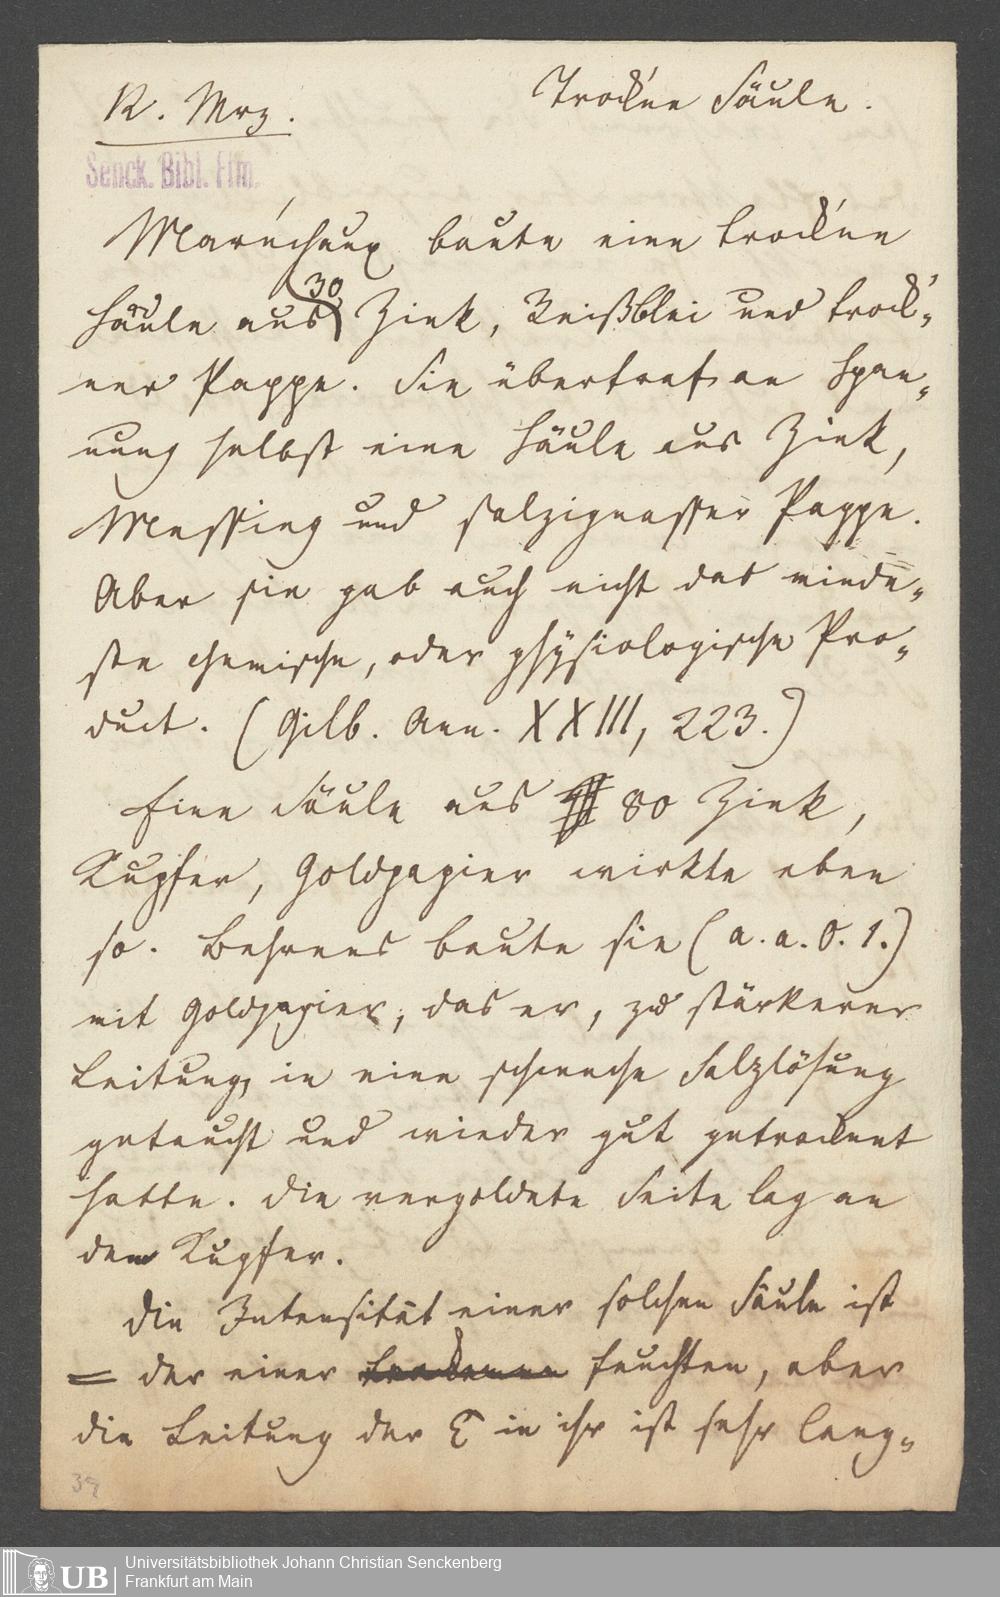 R. Mrz.
Trock'ne Säule.
Senck. Bibl. Ffm.
Maréchaux baute eine trock'ne
30
Säule aus Zink, Reißblei und trock'-
ner Pappe. Sie übertraf an Span-
nung selbst eine Säule aus Zink,
Messing und salzignasser Pappe.
Aber sie gab auch nicht das minde-
ste chemische, oder physiologische Pro-
duct. (Gilb. Ann. XXIII, 223.)
Eine Säule aus 80 Zink,
Kupfer, Goldpapier wirkte eben
so. Behrens baute sie (a. a. O. 1.)
mit Goldpapier, das er, zu stärkerer
Leitung, in eine schwache Salzlösung
getaucht und wieder gut getrocknet
hatte. Die vergoldete Seite lag an
dem Kupfer.
Die Intensität einer solchen Säule ist
= der einer trockenen feuchten, aber
die Leitung der E in ihr ist sehr lang-
39
UB
Universitätsbibliothek Johann Christian Senckenberg
Frankfurt am Main